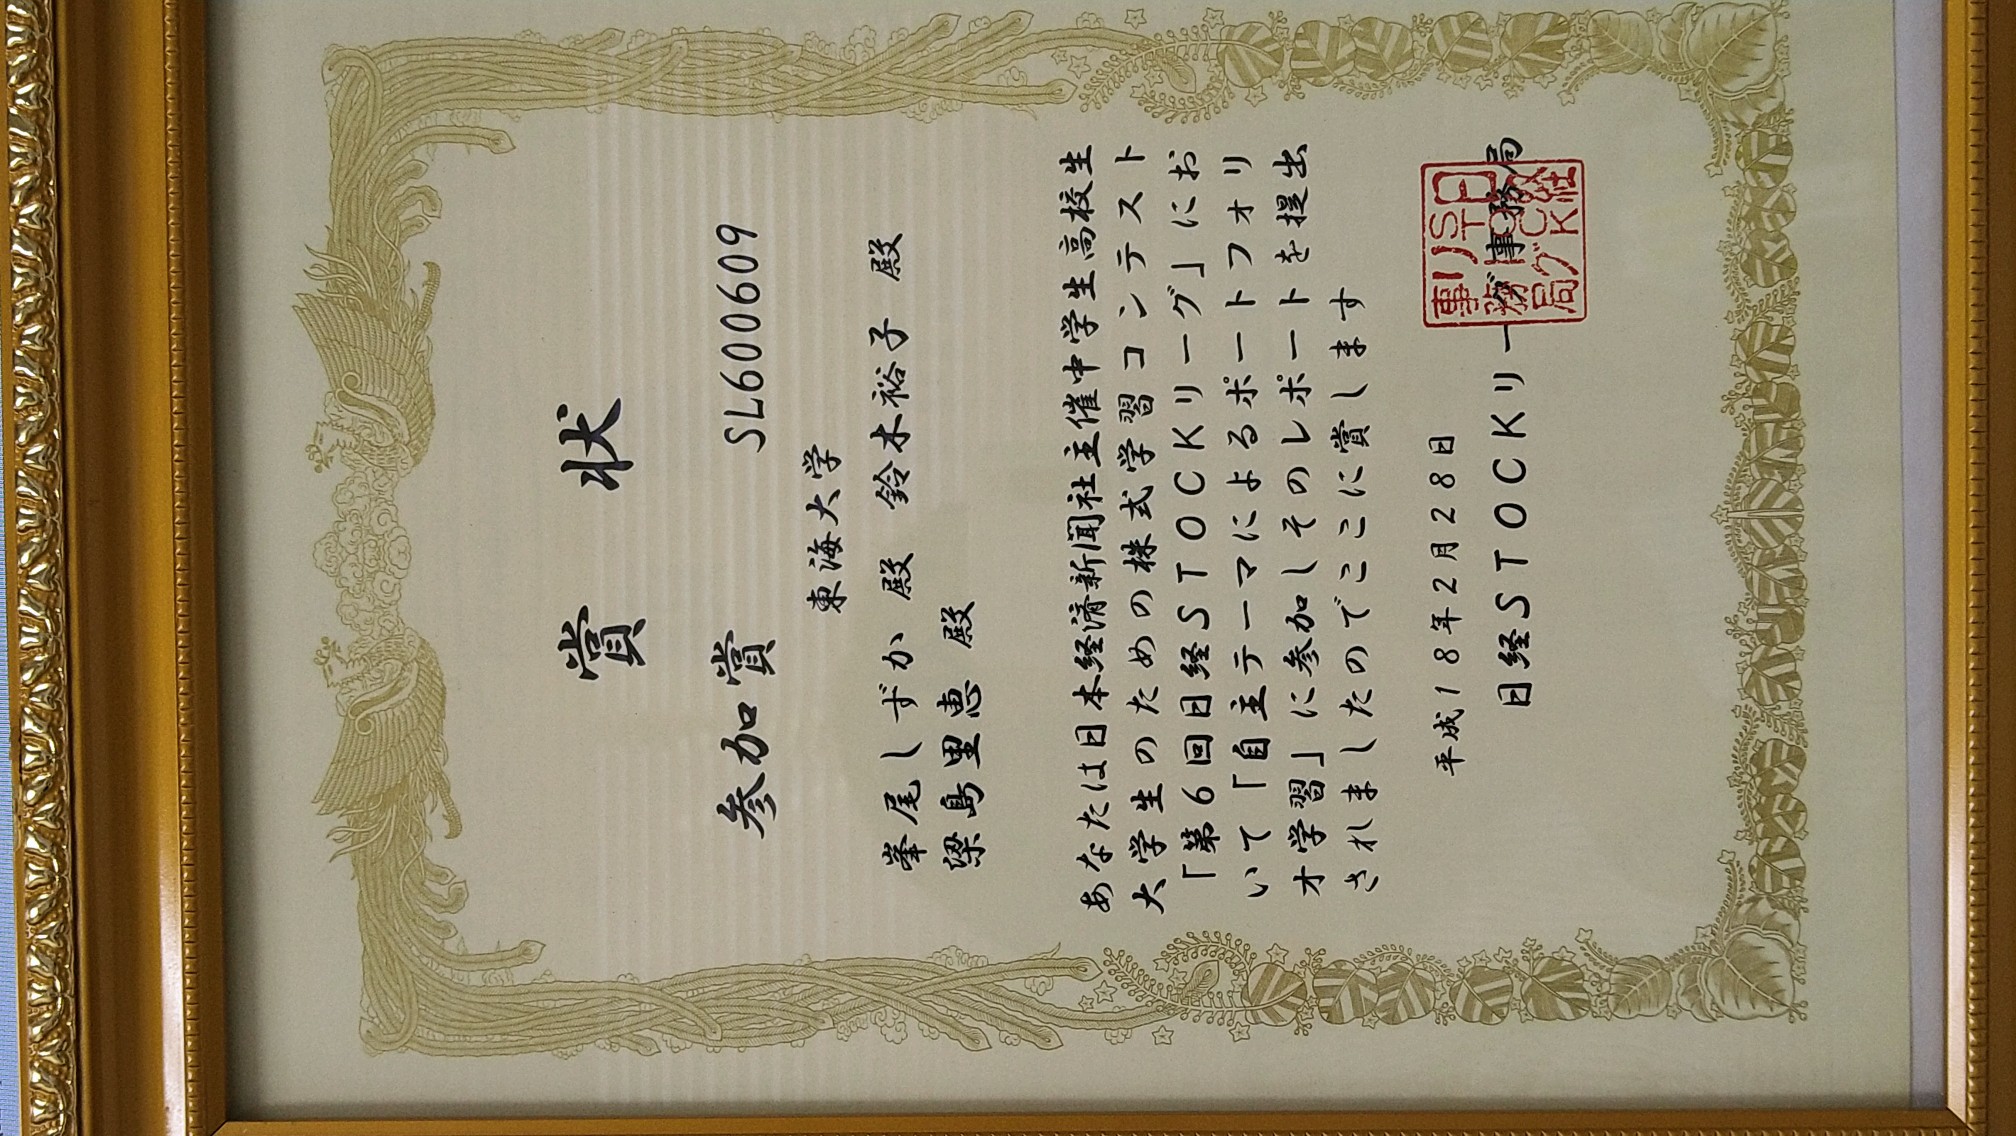 賞状
参加賞 SL600609
東海大学
峯尾しずか 殿 鈴木裕子 殿
梁島里恵 殿
あなたは日本経済新聞社主催中学生高校生
大学生のための株式学習コンテスト
「第6回日経STOCKリーグ」にお
いて「自主テーマによるポートフォリ
オ学習」に参加しそのレポートを提出
されましたのでここに賞します
平成18年2月28日
日経STOCKリーグ事務局
日経
STOCK
リーグ
事務局